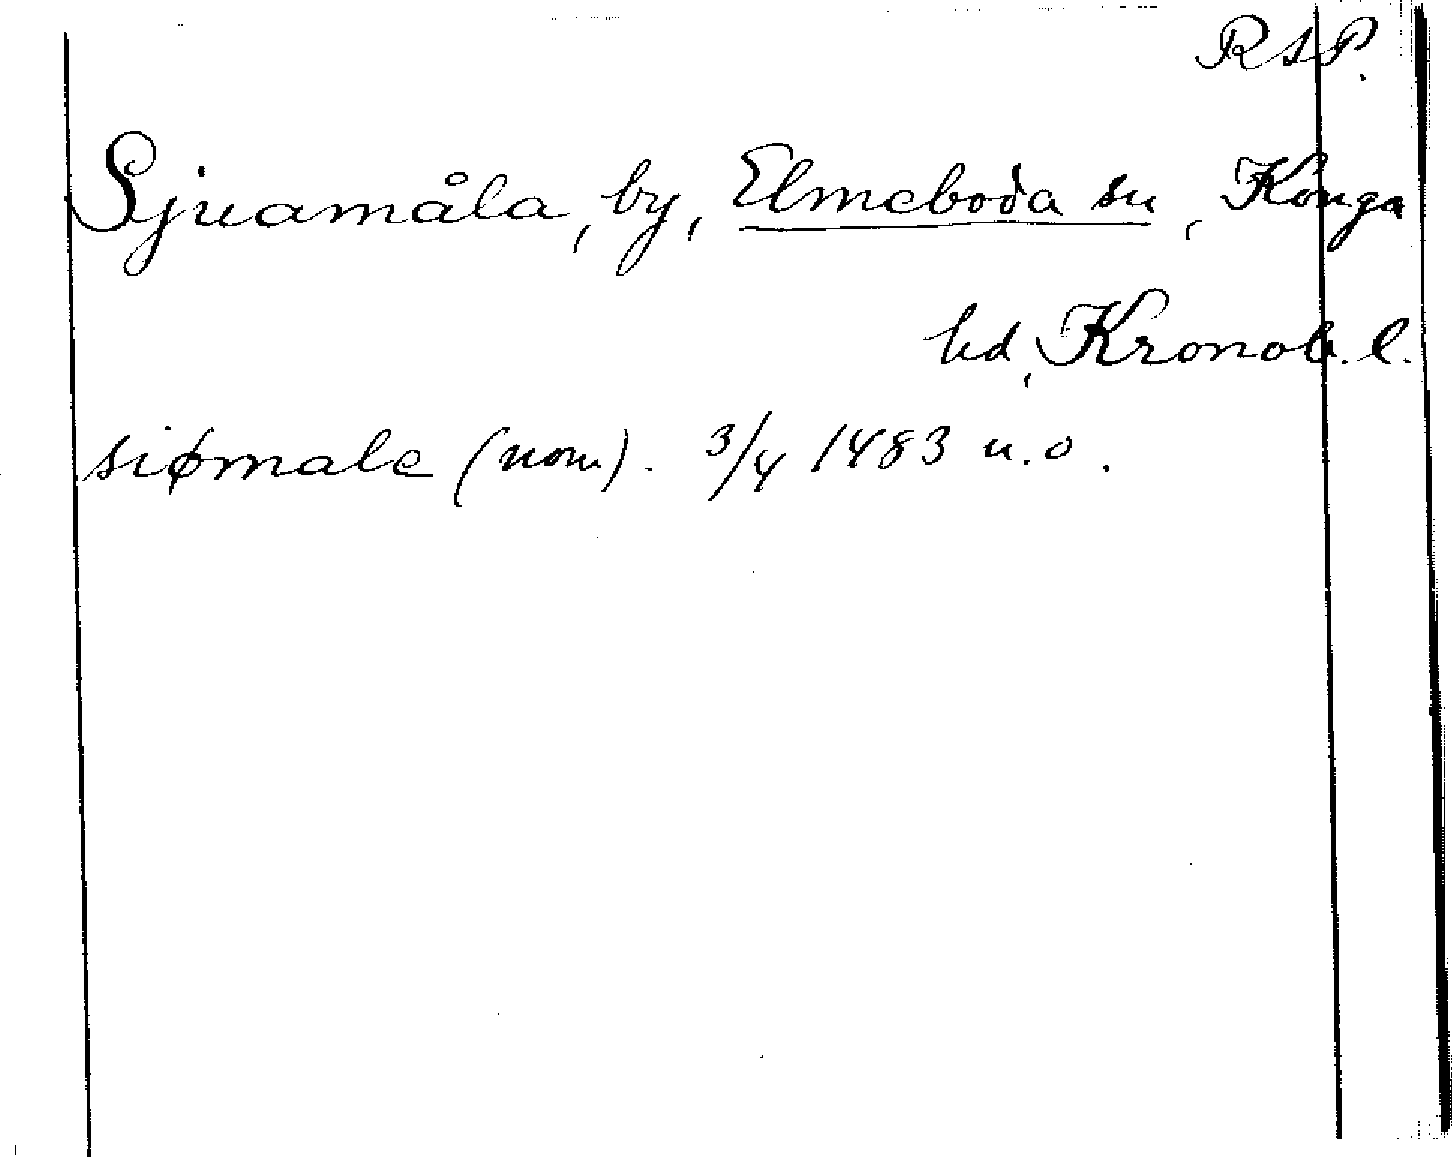 RAP.
Sjuamåla, by, Elmeboda sn, Konga
hd, Kronob. l.
siømale (nom). 3/4 1483 u.o.